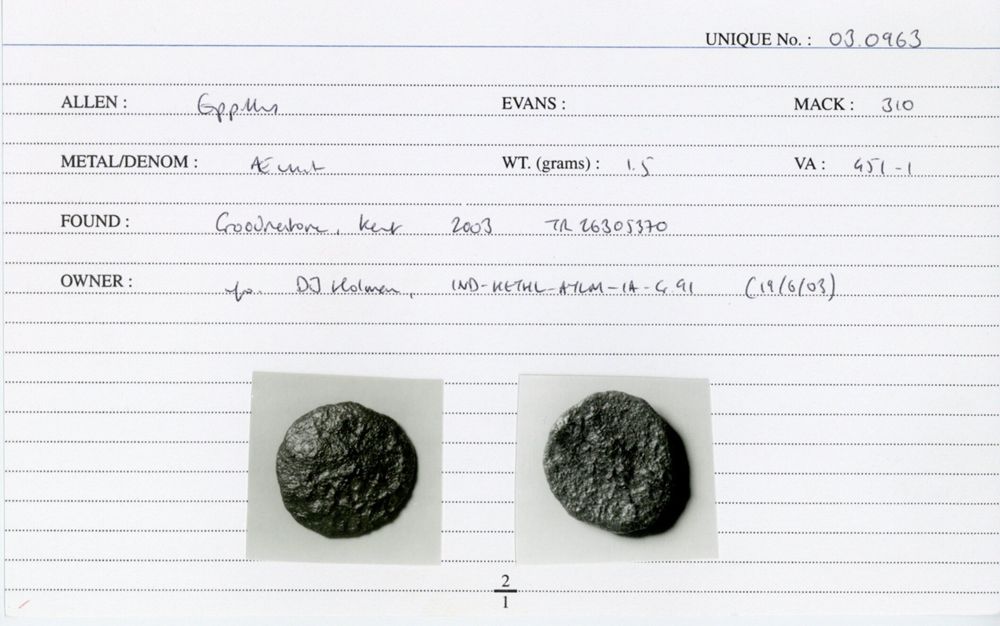 UNIQUE No. : 03.0963
ALLEN : Eppillus EVANS : MACK : 310
METAL/DENOM : Æ unit WT. (grams) : 1.5 VA : 451-1
FOUND : Goodnestone, Kent 2003 TR 26305370
OWNER : DJ Holman, (19/6/03)
2
1